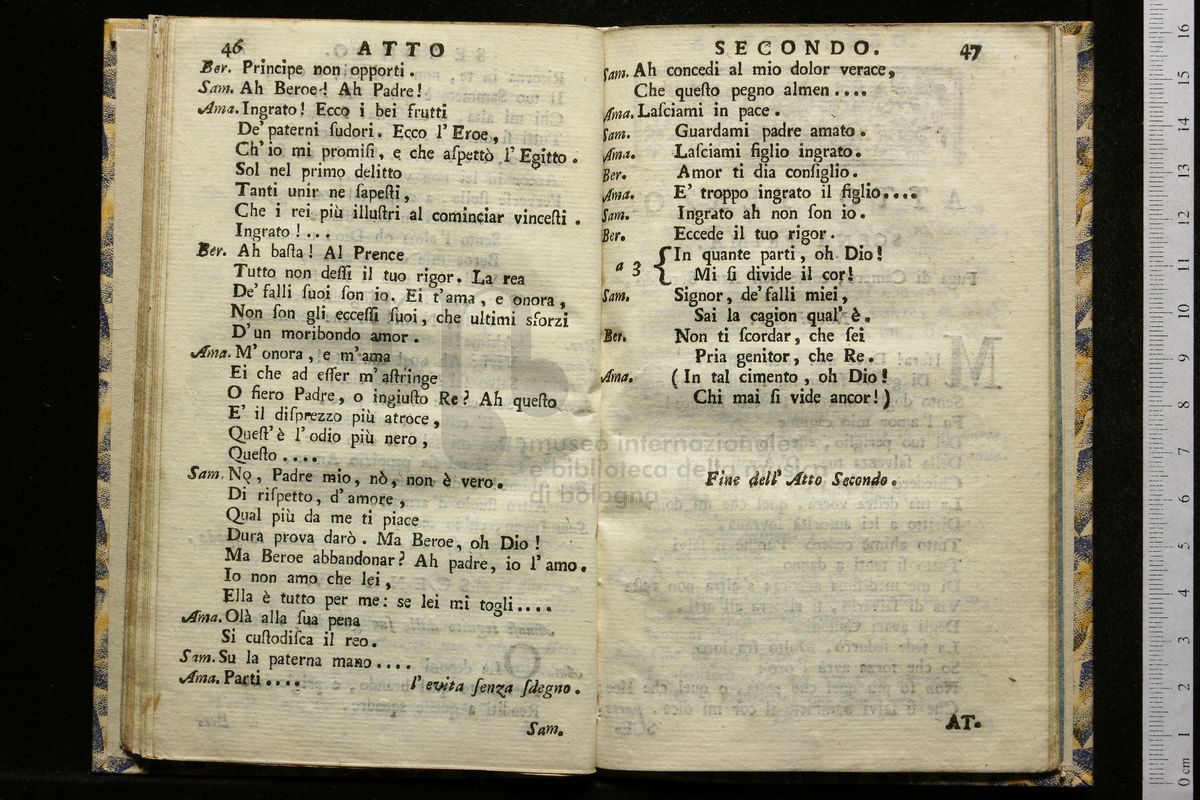 46 ATTO
Ber. Principe non opporti.
Sam. Ah Beroe! Ah Padre!
Ama. Ingrato! Ecco i bei frutti
De' paterni ſudori. Ecco l' Eroe,
Ch' io mi promiſi, e che aſpettò l' Egitto.
Sol nel primo delitto
Tanti unir ne ſapeſti,
Che i rei più illuſtri al cominciar vinceſti.
Ingrato!...
Ber. Ah baſta! Al Prence
Tutto non deſſi il tuo rigor. La rea
De' falli ſuoi ſon io. Ei t'ama, e onora,
Non ſon gli ecceſſi ſuoi, che ultimi sforzi
D'un moribondo amor.
Ama. M' onora, e m'ama
Ei che ad eſſer m'aſtringe
O fiero Padre, o ingiuſto Re? Ah queſto
E' il diſprezzo più atroce,
Queſt' è l' odio più nero,
Queſto ....
Sam. No, Padre mio, nò, non è vero.
Di riſpetto, d'amore,
Qual più da me ti piace
Dura prova darò. Ma Beroe, oh Dio!
Ma Beroe abbandonar? Ah padre, io l'amo.
Io non amo che lei,
Ella è tutto per me: se lei mi togli....
Ama. Olà alla ſua pena
Si cuſtodiſca il reo.
Sam. Su la paterna mano....
Ama. Parti.... l' evita ſenza ſdegno.
Sam.
SECONDO. 47
Sam. Ah concedi al mio dolor verace,
Che queſto pegno almen....
Ama. Laſciami in pace.
Sam. Guardami padre amato.
Ama. Laſciami figlio ingrato.
Ber. Amor ti dia conſiglio.
Ama. E' troppo ingrato il figlio....
Sam. Ingrato ah non ſon io.
Ber. Eccede il tuo rigor.
a 3 { In quante parti, oh Dio!
Mi ſi divide il cor!
Sam. Signor, de' falli miei,
Sai la cagion qual' è.
Ber. Non ti ſcordar, che ſei
Pria genitor, che Re.
Ama. (In tal cimento, oh Dio!
Chi mai ſi vide ancor!)
Fine dell' Atto Secondo.
AT.
museo internazionale
e biblioteca della musica
di bologna
0 cm 1 2 3 4 5 6 7 8 9 10 11 12 13 14 15 16